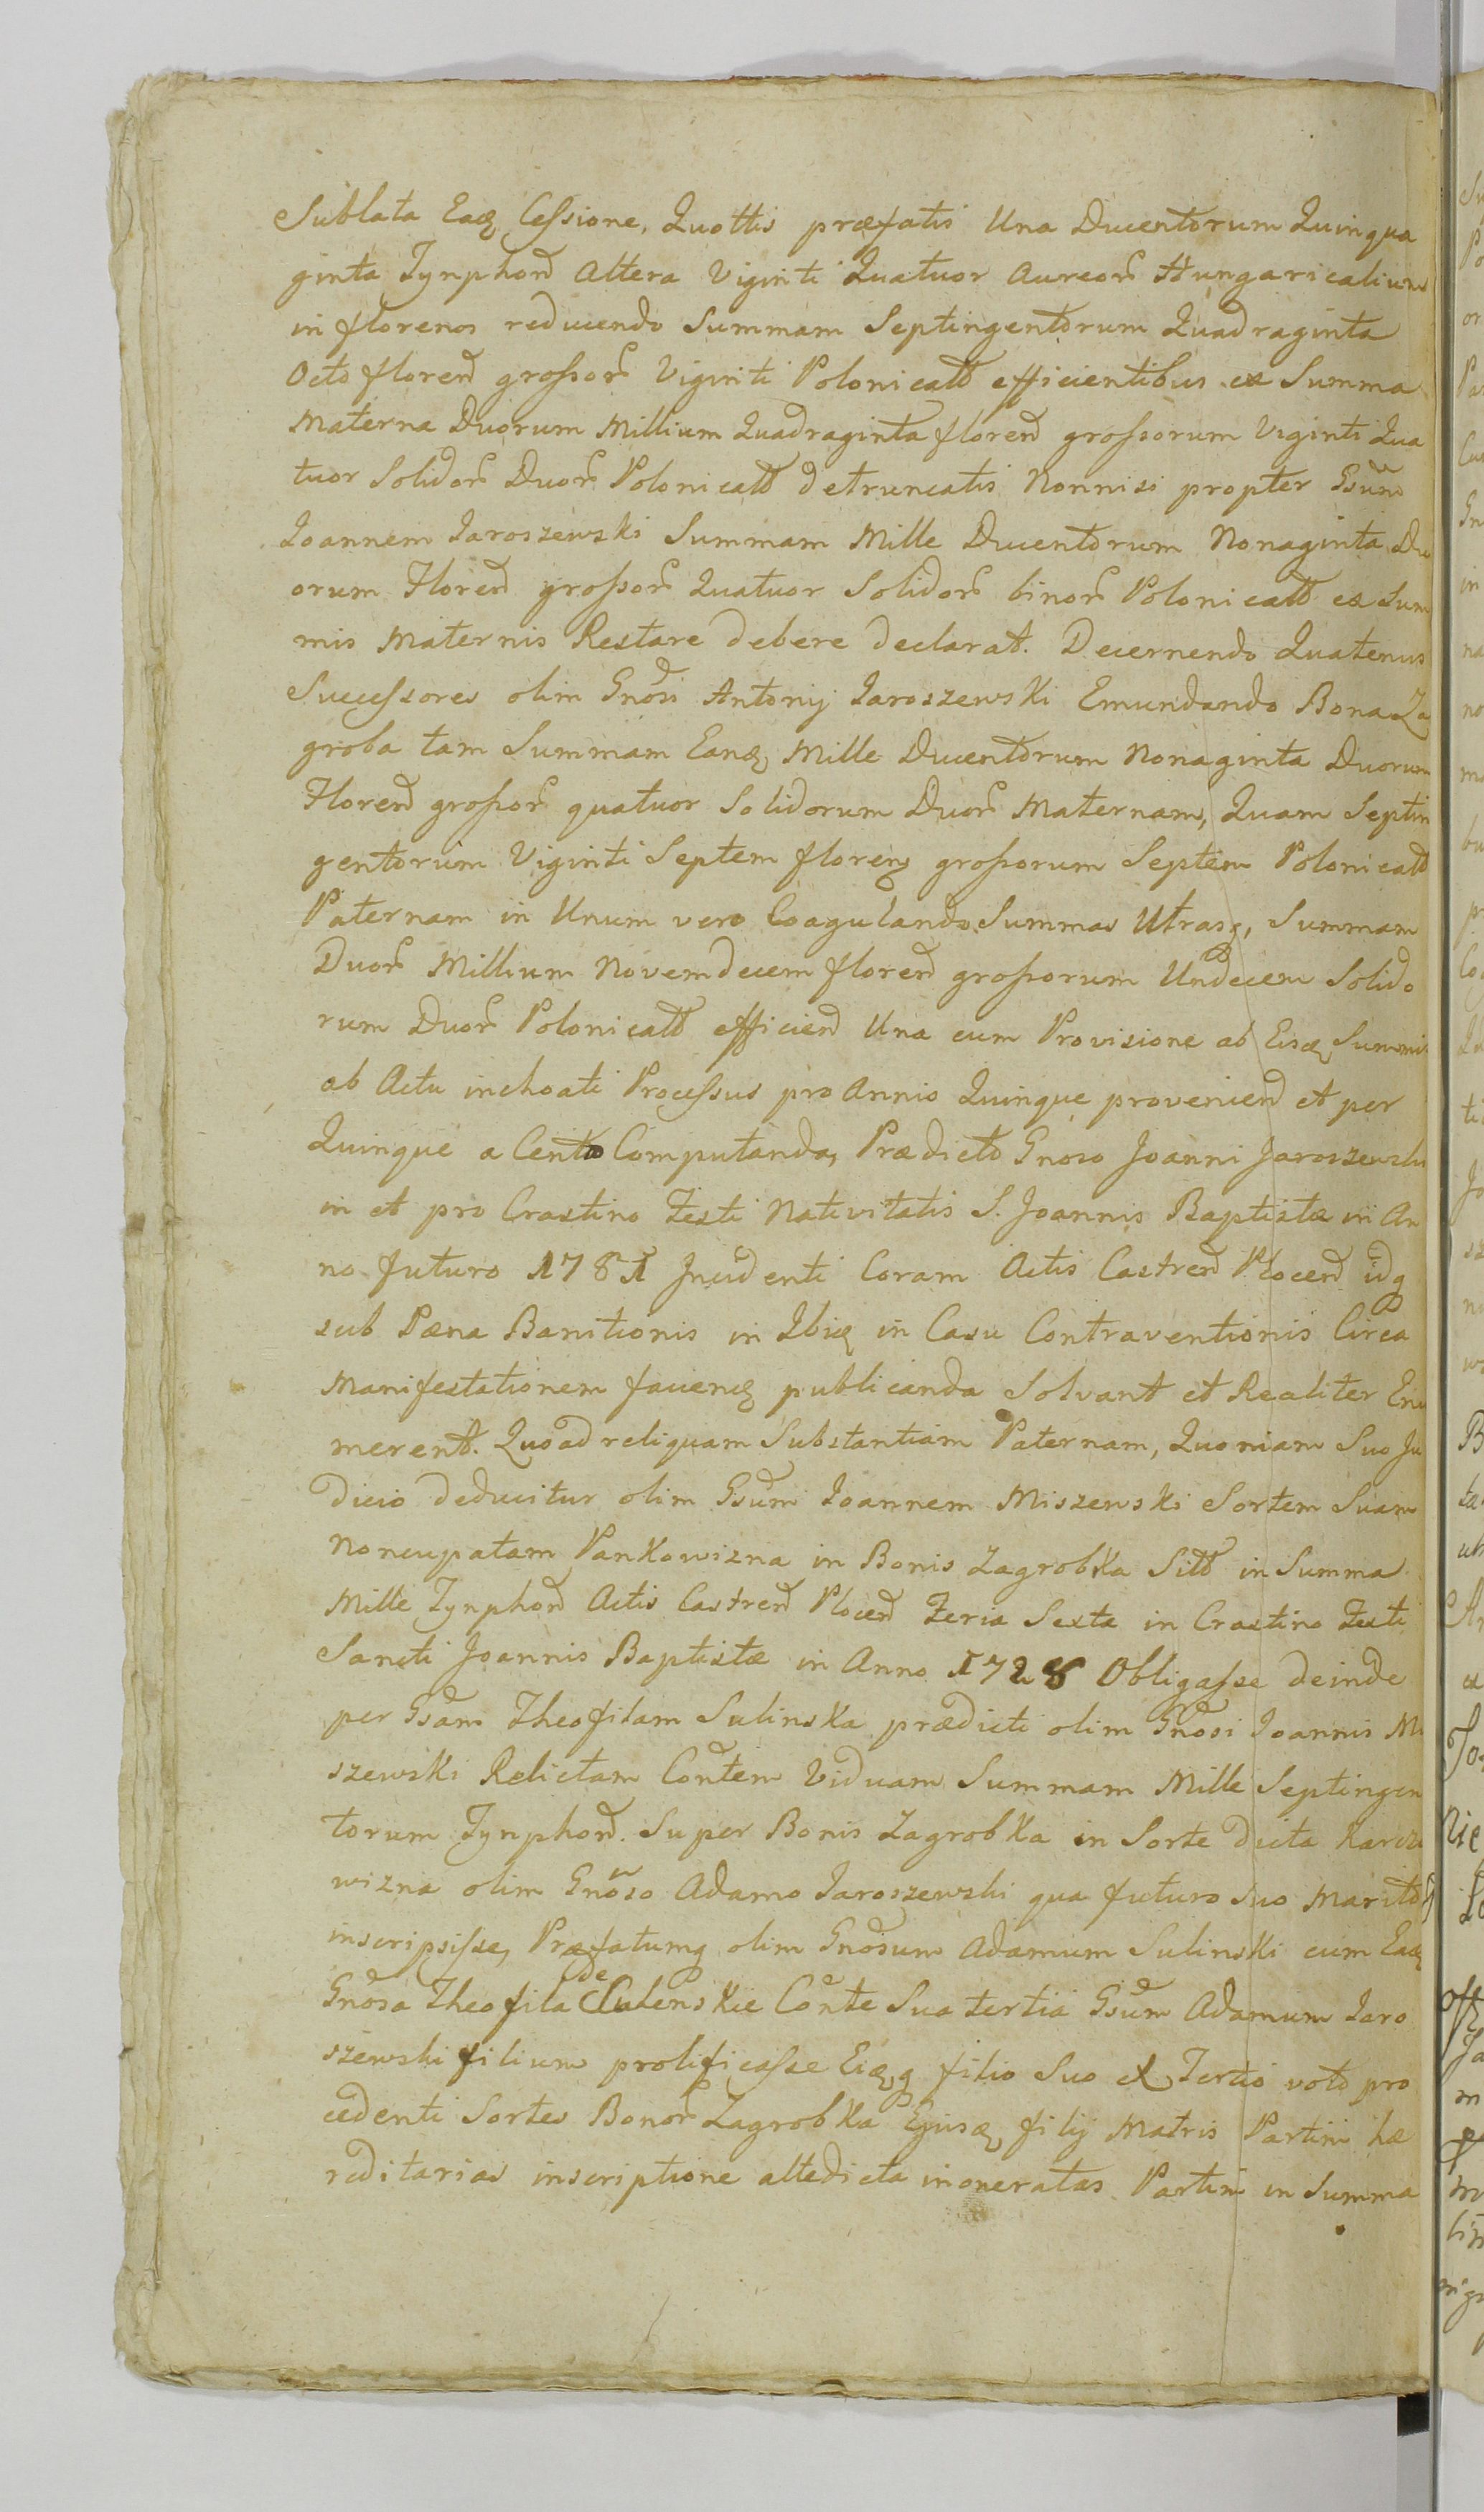 Sublata Eaq Cessione, Quottis præfatis Una Ducentorum Quinqua
ginta Tynphorū Altera Viginti Quatuor Aureorū Hungaricalium
in florenos reducendo Summam Septingentorum Quadraginta
Octo florenū grossorū Viginti Polonicatū efficientibus ex Summa
Materna Duorum Millium Quadraginta florenū grossorum Viginti Qua
tuor Solidorū Duorū Polonicatū detruncatis Nonnisi propter Gsum
Ioannem Iaroszewski Summam Mille Ducentorum Nonaginta Du
orum Florenū grossorū Quatuor Solidorū binorū Polonicatū ex Sum
mis Maternis Restare debere declarat. Decernendo Quatenus
Successores olim Gnosi Antonij Iaroszewski Emundando Bona Za
groba tam Summam Eanq Mille Ducentorum Nonaginta Duorum
Florenū grossorū quatuor Solidorum Duorū Maternam, Quam Septin
gentorum Viginti Septem florenq grossorum Septem Polonicatū
Paternam in Unum vero Coagulando Summas Utrasq, Summam
Duorū Millium Novemdecem florenū grossorum Undecem Solido
rum Duorū Polonicatū efficienū Una cum Provisione ab Eisq Summis
ab Actu inchoati Processus pro Annis Quinque provenienū et per
Quinque a Cento Computanda, Prædicto Gnoso Joanni Jaroszewski
in et pro Crastino Festi Nativitatis S. Joannis Baptistæ in An
no futuro 1781 Incidenti Coram Actis Castrenū Plocenū idq
sub Pæna Banitionis in Ibiq in Casu Contraventionis Circa
Manifestationem faciendq publicanda Solvant et Realiter Enu
merent. Quoad reliquam Substantiam Paternam, Quoniam Suo Ju
dicio deducitur olim Gsum Ioannem Miszewski Sortem Suam
Noncupatam Pankowizna in Bonis Zagrobka Sitū in Summa
Mille Tynphorū Actis Castrenū Plocenū Feria Sexta in Crastino Festi
Sancti Joannis Baptistæ in Anno 1728 Obligasse deinde
per Gsam Theofilam Sulinska prædicti olim Gnosi Ioannis Mi
szewski Relictam Contem Viduam Summam Mille Septingen
torum Tynphorū. Super Bonis Zagrobka in Sorte dicta
wizna olim Gnoso Adamo Iaroszewski qua futuro Suo Marito
inscripsisse, Præfatumq olim Gnosum Adamum Sulinski cum Eaq
Gnosa Theofila de Culenskie Conte Sua tertia Gsum Adamum Iaro
szewski filium prolificasse Eiqq filio Suo ex Tertio voto pro
cedenti Sortes Bonorū Zagrobka Ejusq filij Matris Partim hæ
reditarias inscriptione altedicta inoneratas Partim in Summa